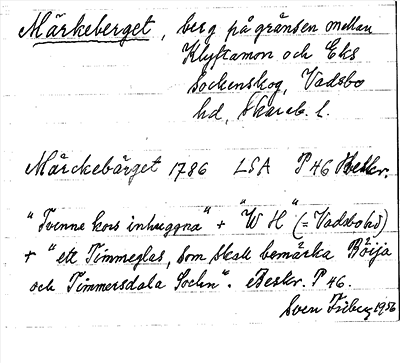 Märkeberget, berg på gränsen mellan
Klyftamon och Eks
sockenskog, Vadsbo
hd, Skarab. l.
Märckebärget 1786 LSA P 46 Beskr.
"Tvenne kors inhuggna" + "W H" (= Vadsbo hd)
+ "ett Timmeglas, som skall bemärka Böija
och Timmersdala Sockn". Beskr. P 46.
Sven Friberg 1956